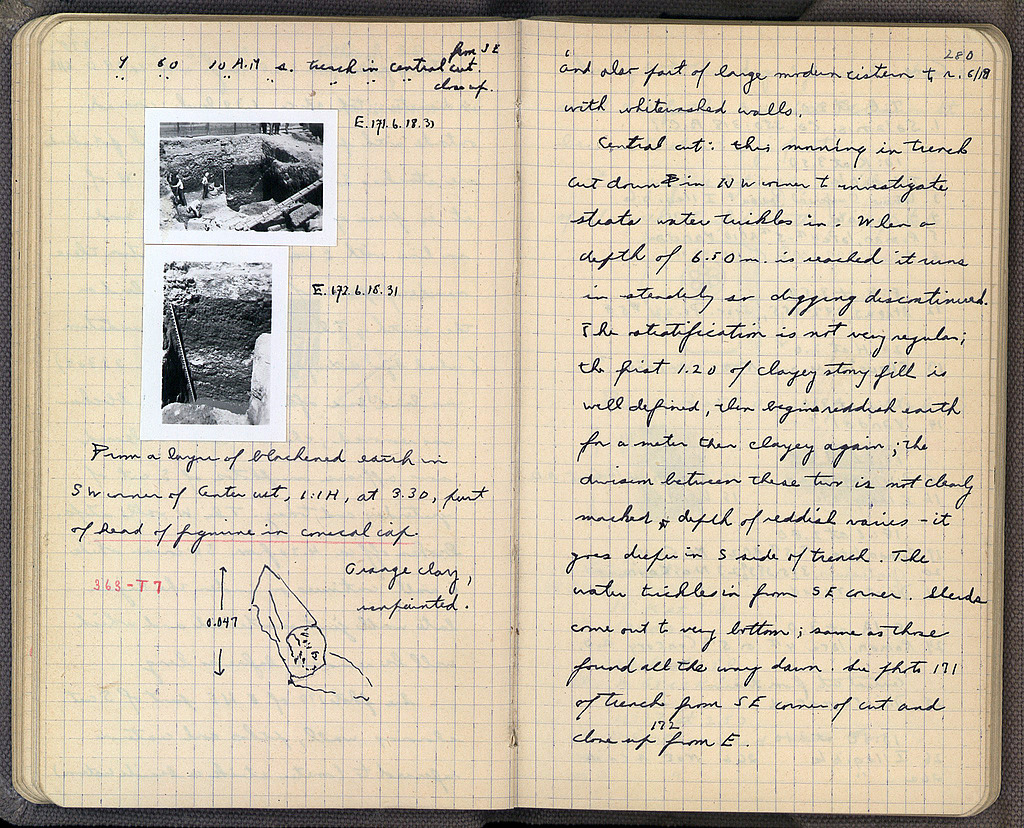 from SE
9 60 10 A.M s. trench in central cut.
close up.
E.171.6.18.31
E.172.6.18.31
From a layer of blackened earth in
SW corner of Center cut, 1:1H, at 3.30, part
of head of figurine in conical cap.
363-T7
Orange clay,
unpainted.
0.047
280
and also part of large modern cistern 6/18
with whitewashed walls.
Central cut: this morning in trench
cut down in NW corner to investigate
strata water trickles in. When a
depth of 6.50 m. is reached it runs
in steadily so digging discontinued.
The stratification is not very regular;
the first 1.20 of clayey stony fill is
well defined, then begins reddish earth
for a meter then clayey again; the
division between these two is not clearly
marked & depth of reddish varies - it
goes deeper in S side of trench. The
water trickles in from SE corner. Sherds
come out to very bottom; same as those
found all the way down. See photo 171
of trench from SE corner of cut and
172
close up from E.